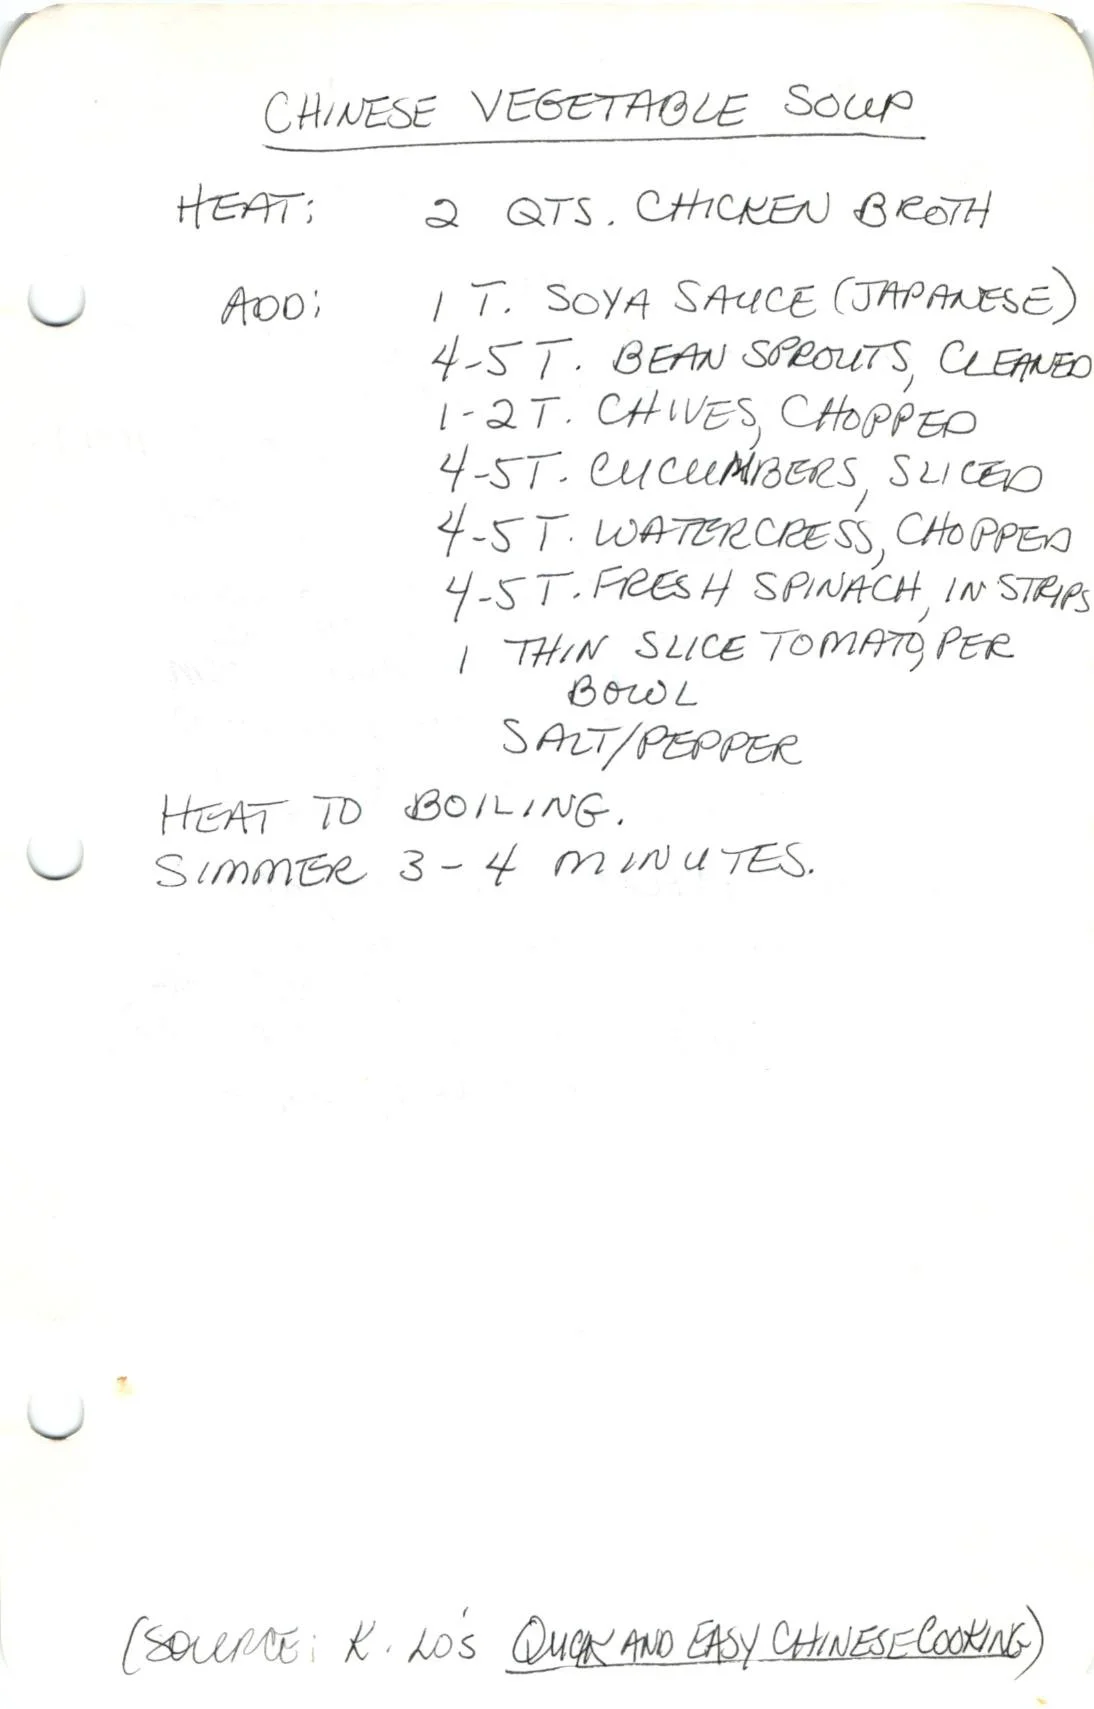 CHINESE VEGETABLE SOUP
HEAT: 2 QTS. CHICKEN BROTH
ADD: 1 T. SOYA SAUCE (JAPANESE)
4-5 T. BEAN SPROUTS, CLEANED
1-2 T. CHIVES, CHOPPED
4-5 T. CUCUMBERS, SLICED
4-5 T. WATERCRESS, CHOPPED
4-5 T. FRESH SPINACH, IN STRIPS
1 THIN SLICE TOMATO, PER
BOWL
SALT/PEPPER
HEAT TO BOILING.
SIMMER 3-4 MINUTES.
(SOURCE: K. LO'S QUICK AND EASY CHINESE COOKING)